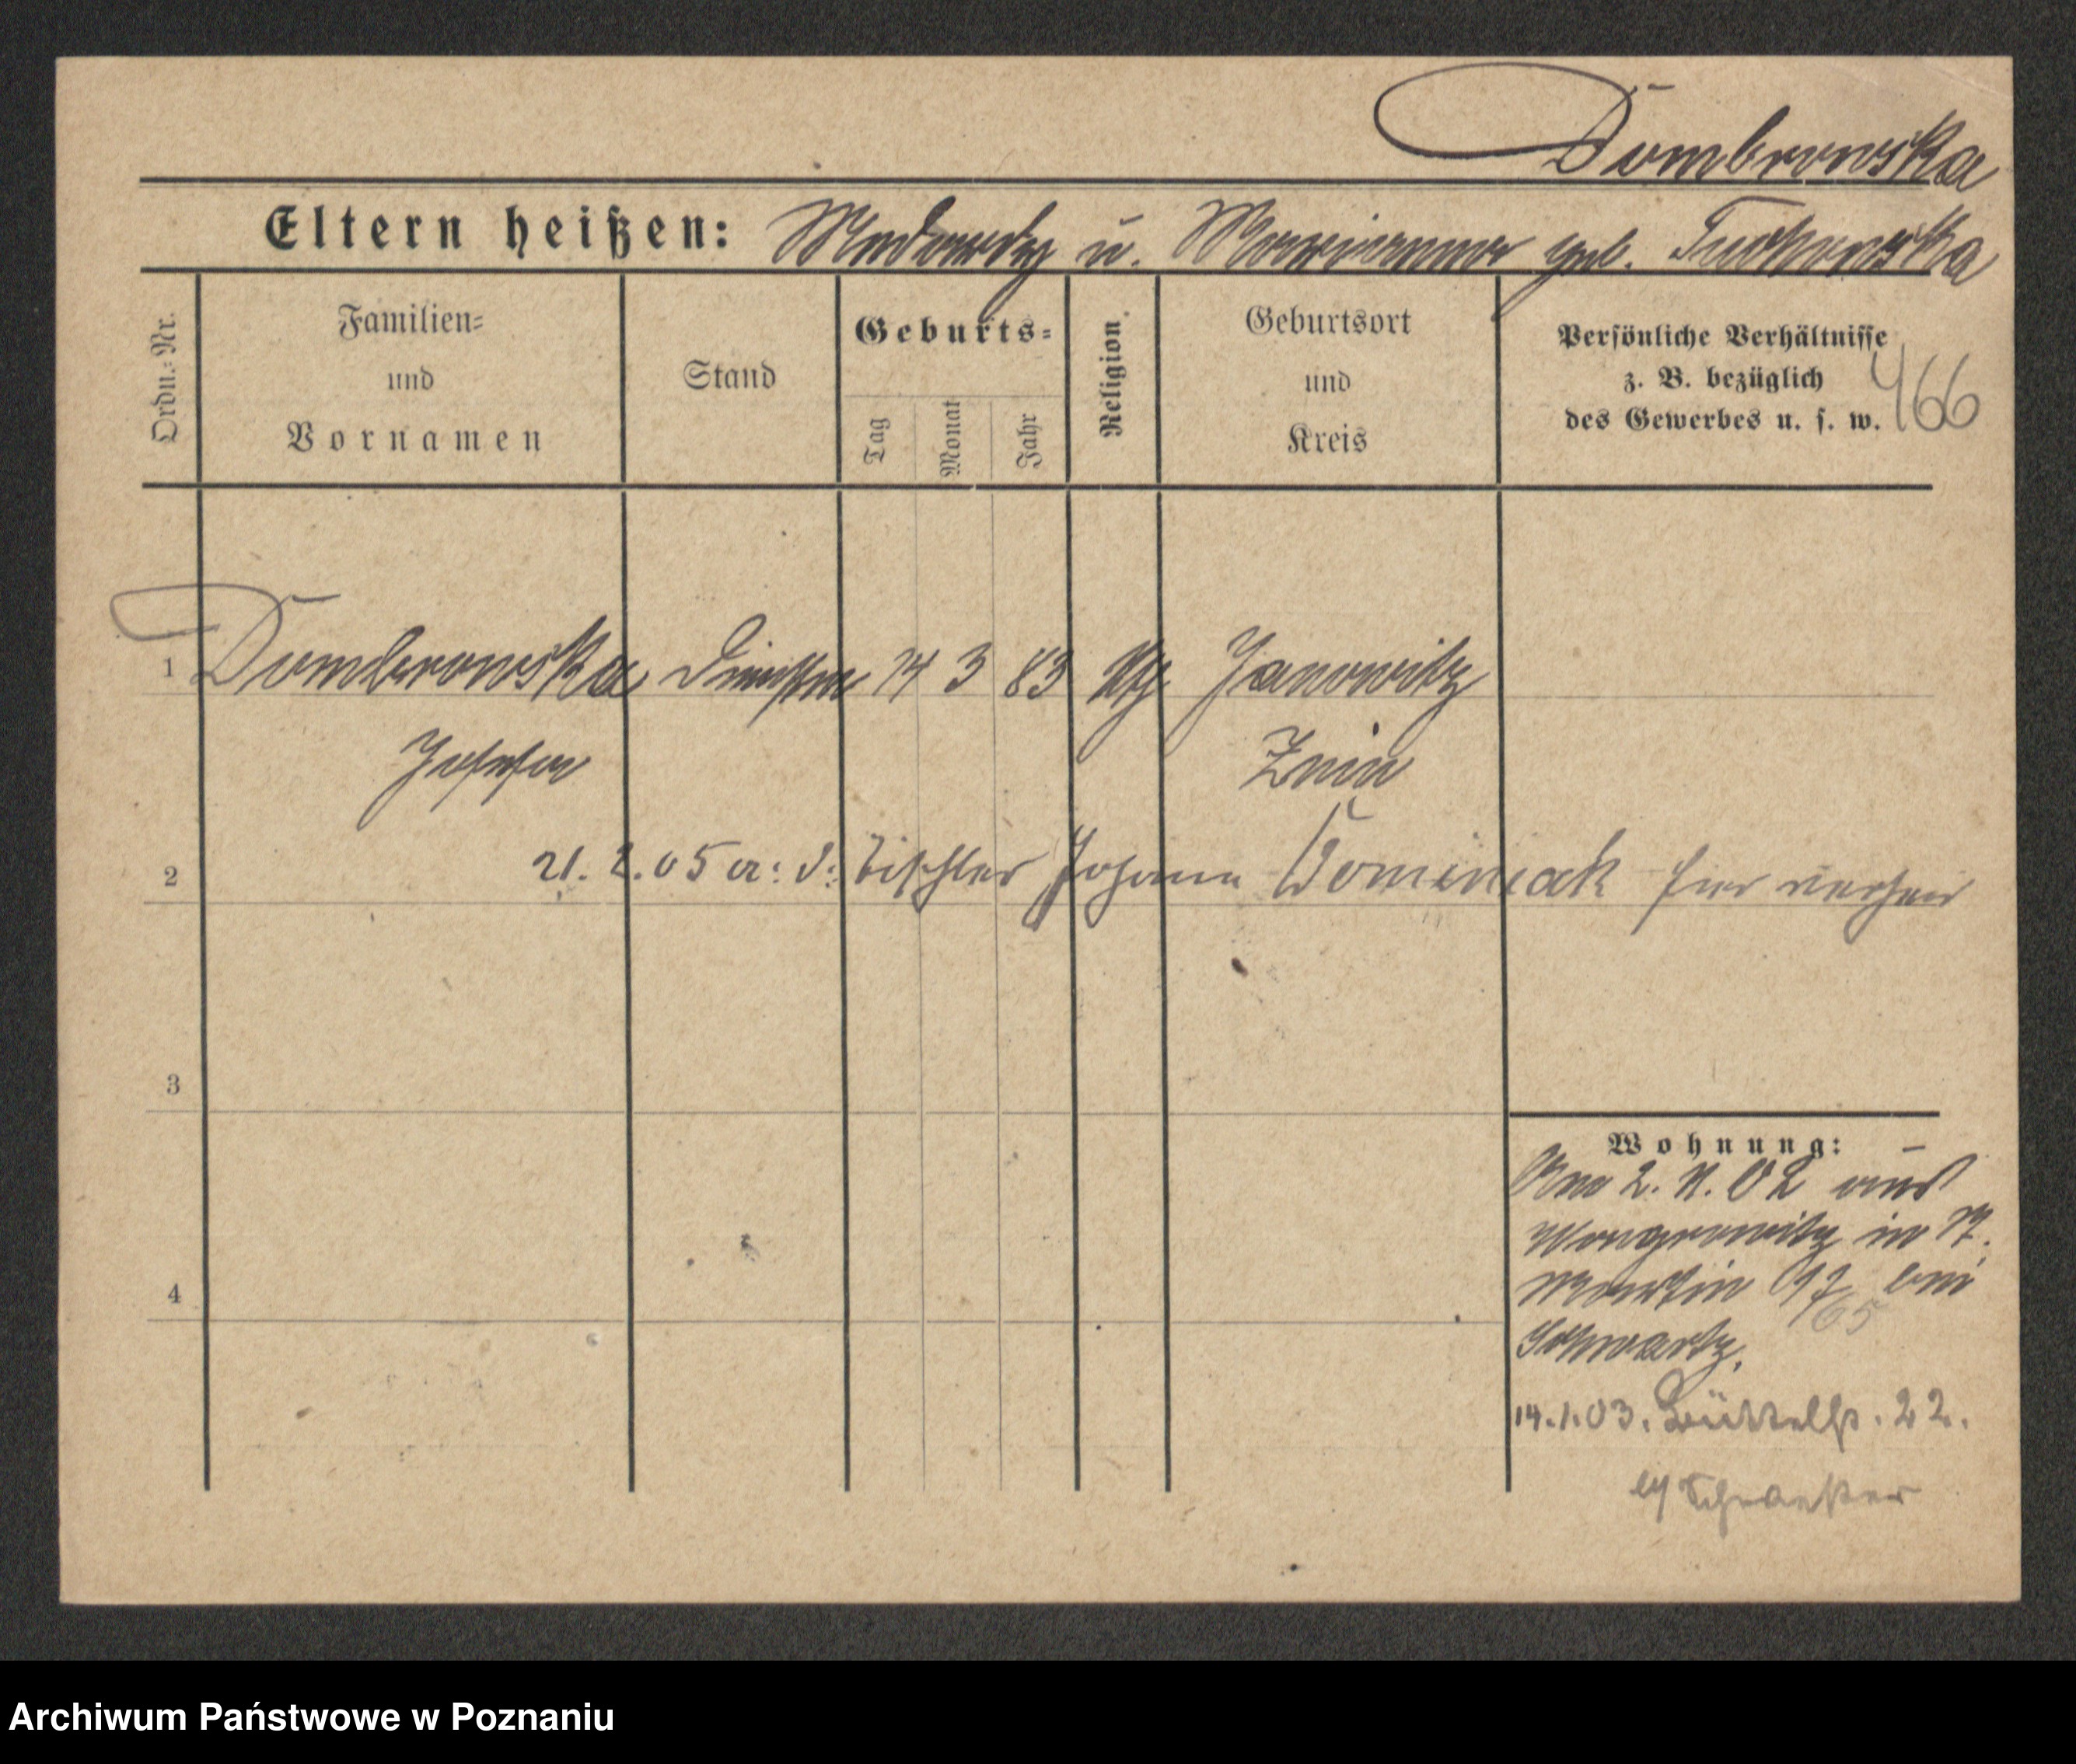 Dombrowska
Eltern heißen: u. Marianna geb. Tuchowska
Ordn.-Nr.
Familien-
und
Vornamen
Stand
Geburts-
Tag
Monat
Jahr
Religion
Geburtsort
und
Kreis
Persönliche Verhältnisse
z. B. bezüglich
des Gewerbes u. s. w.
466
1 Dombrowska 14 3 83 Kth Janowitz
Josefa Znin
2 21. 2. 05 a: d: Tischler Johann Dominiak hier
3
4
Wohnung:
Am 2. 11. 02 aus
Wongrowitz in St.
Martin bei
65
Schwartz.
14. 1. 03. Büttelstr. 22.
Archiwum Państwowe w Poznaniu